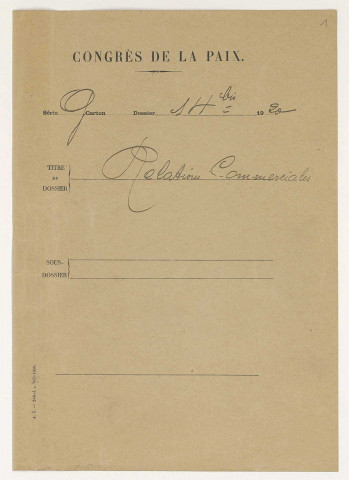 1
CONGRÈS DE LA PAIX.
Série G Carton Dossier 14 bis 1920
TITRE DU DOSSIER Relations Commerciales
SOUS-DOSSIER